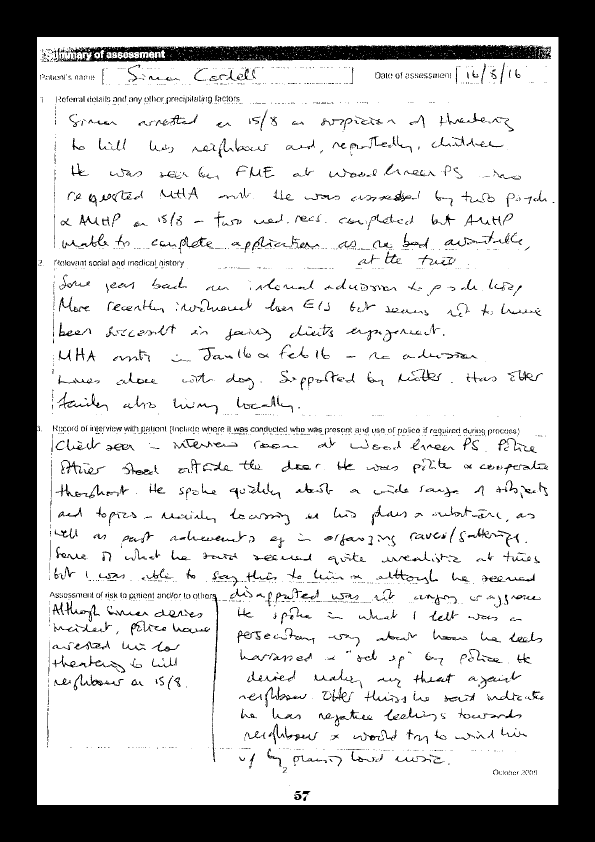 Summary of assessment
Patient's name Simon Cordell Date of assessment 16/8/16
1. Referral details and any other precipitating factors
Simon arrested on 15/8 on suspicion of threatening
to kill his neighbour and, reportedly, children.
He was seen by FME at Wood Green PS – who
requested MHA assmt. He was assessed by two psych.
& AMHP on 15/8 – two med. recs. completed but AMHP
unable to complete application as no bed available,
at the time
2. Relevant social and medical history
Some years back an informal admission to psych. hosp
More recently involvement from EIS but seems not to have
been successful in gaining clients engagement.
MHA assmts in Jan 16 & Feb 16 – no admission.
Lives alone with dog. Supported by mother. Has other
family also living locally.
3. Record of interview with patient (include where it was conducted who was present and use of police if required during process)
Client seen in interview room at Wood Green PS. Police
Officer stood outside the door. He was polite & cooperative
throughout. He spoke quickly about a wide range of subjects
and topics – mainly focussing on his plans & ambitions, as
well as past achievements eg in organizing raves/gatherings.
Some of what he said seemed quite unrealistic at times
but I was able to say this to him & although he seemed
Assessment of risk to patient and/or to others
disappointed was not angry or aggressive
Although Simon denies
incident, police have
arrested him for
threatening to kill
neighbour on 15/8.
He spoke in what I felt was a
persecutory way about how he feels
harrassed & "set up" by police. He
denied making any threat against
neighbour. Other things he said indicate
he has negative feelings towards
neighbour & would try to wind him
up by playing loud music.
2
October 2008
57